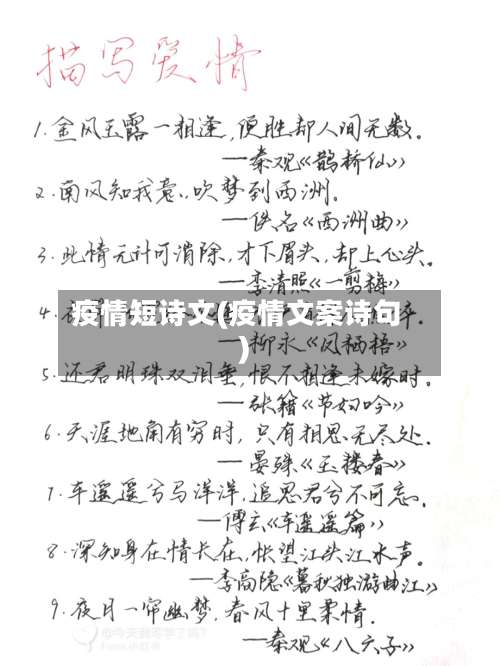 描写爱情
1.金风玉露一相逢,便胜却人间无数。
—秦观《鹊桥仙》
2.南风知我意,吹梦到西洲.
—佚名《西洲曲》
3.此情无计可消除,才下眉头,却上心头。
—李清照《一剪梅》
4.
疫情短诗文(疫情文案诗句
)
—柳永《凤栖梧》
5.还君明珠双泪垂,恨不相逢未嫁时.
—张籍《节妇吟》
6.天涯地角有穷时,只有相思无尽处.
—晏殊《玉楼春》
7.车遥遥兮马洋洋,追思君兮不可忘.
—傅玄《车遥遥篇》
8.深知身在情长在,怅望江头江水声。
—李商隐《暮秋独游曲江》
9.夜月一帘幽梦,春风十里柔情.
—秦观《八六子》
你今天练字了吗?